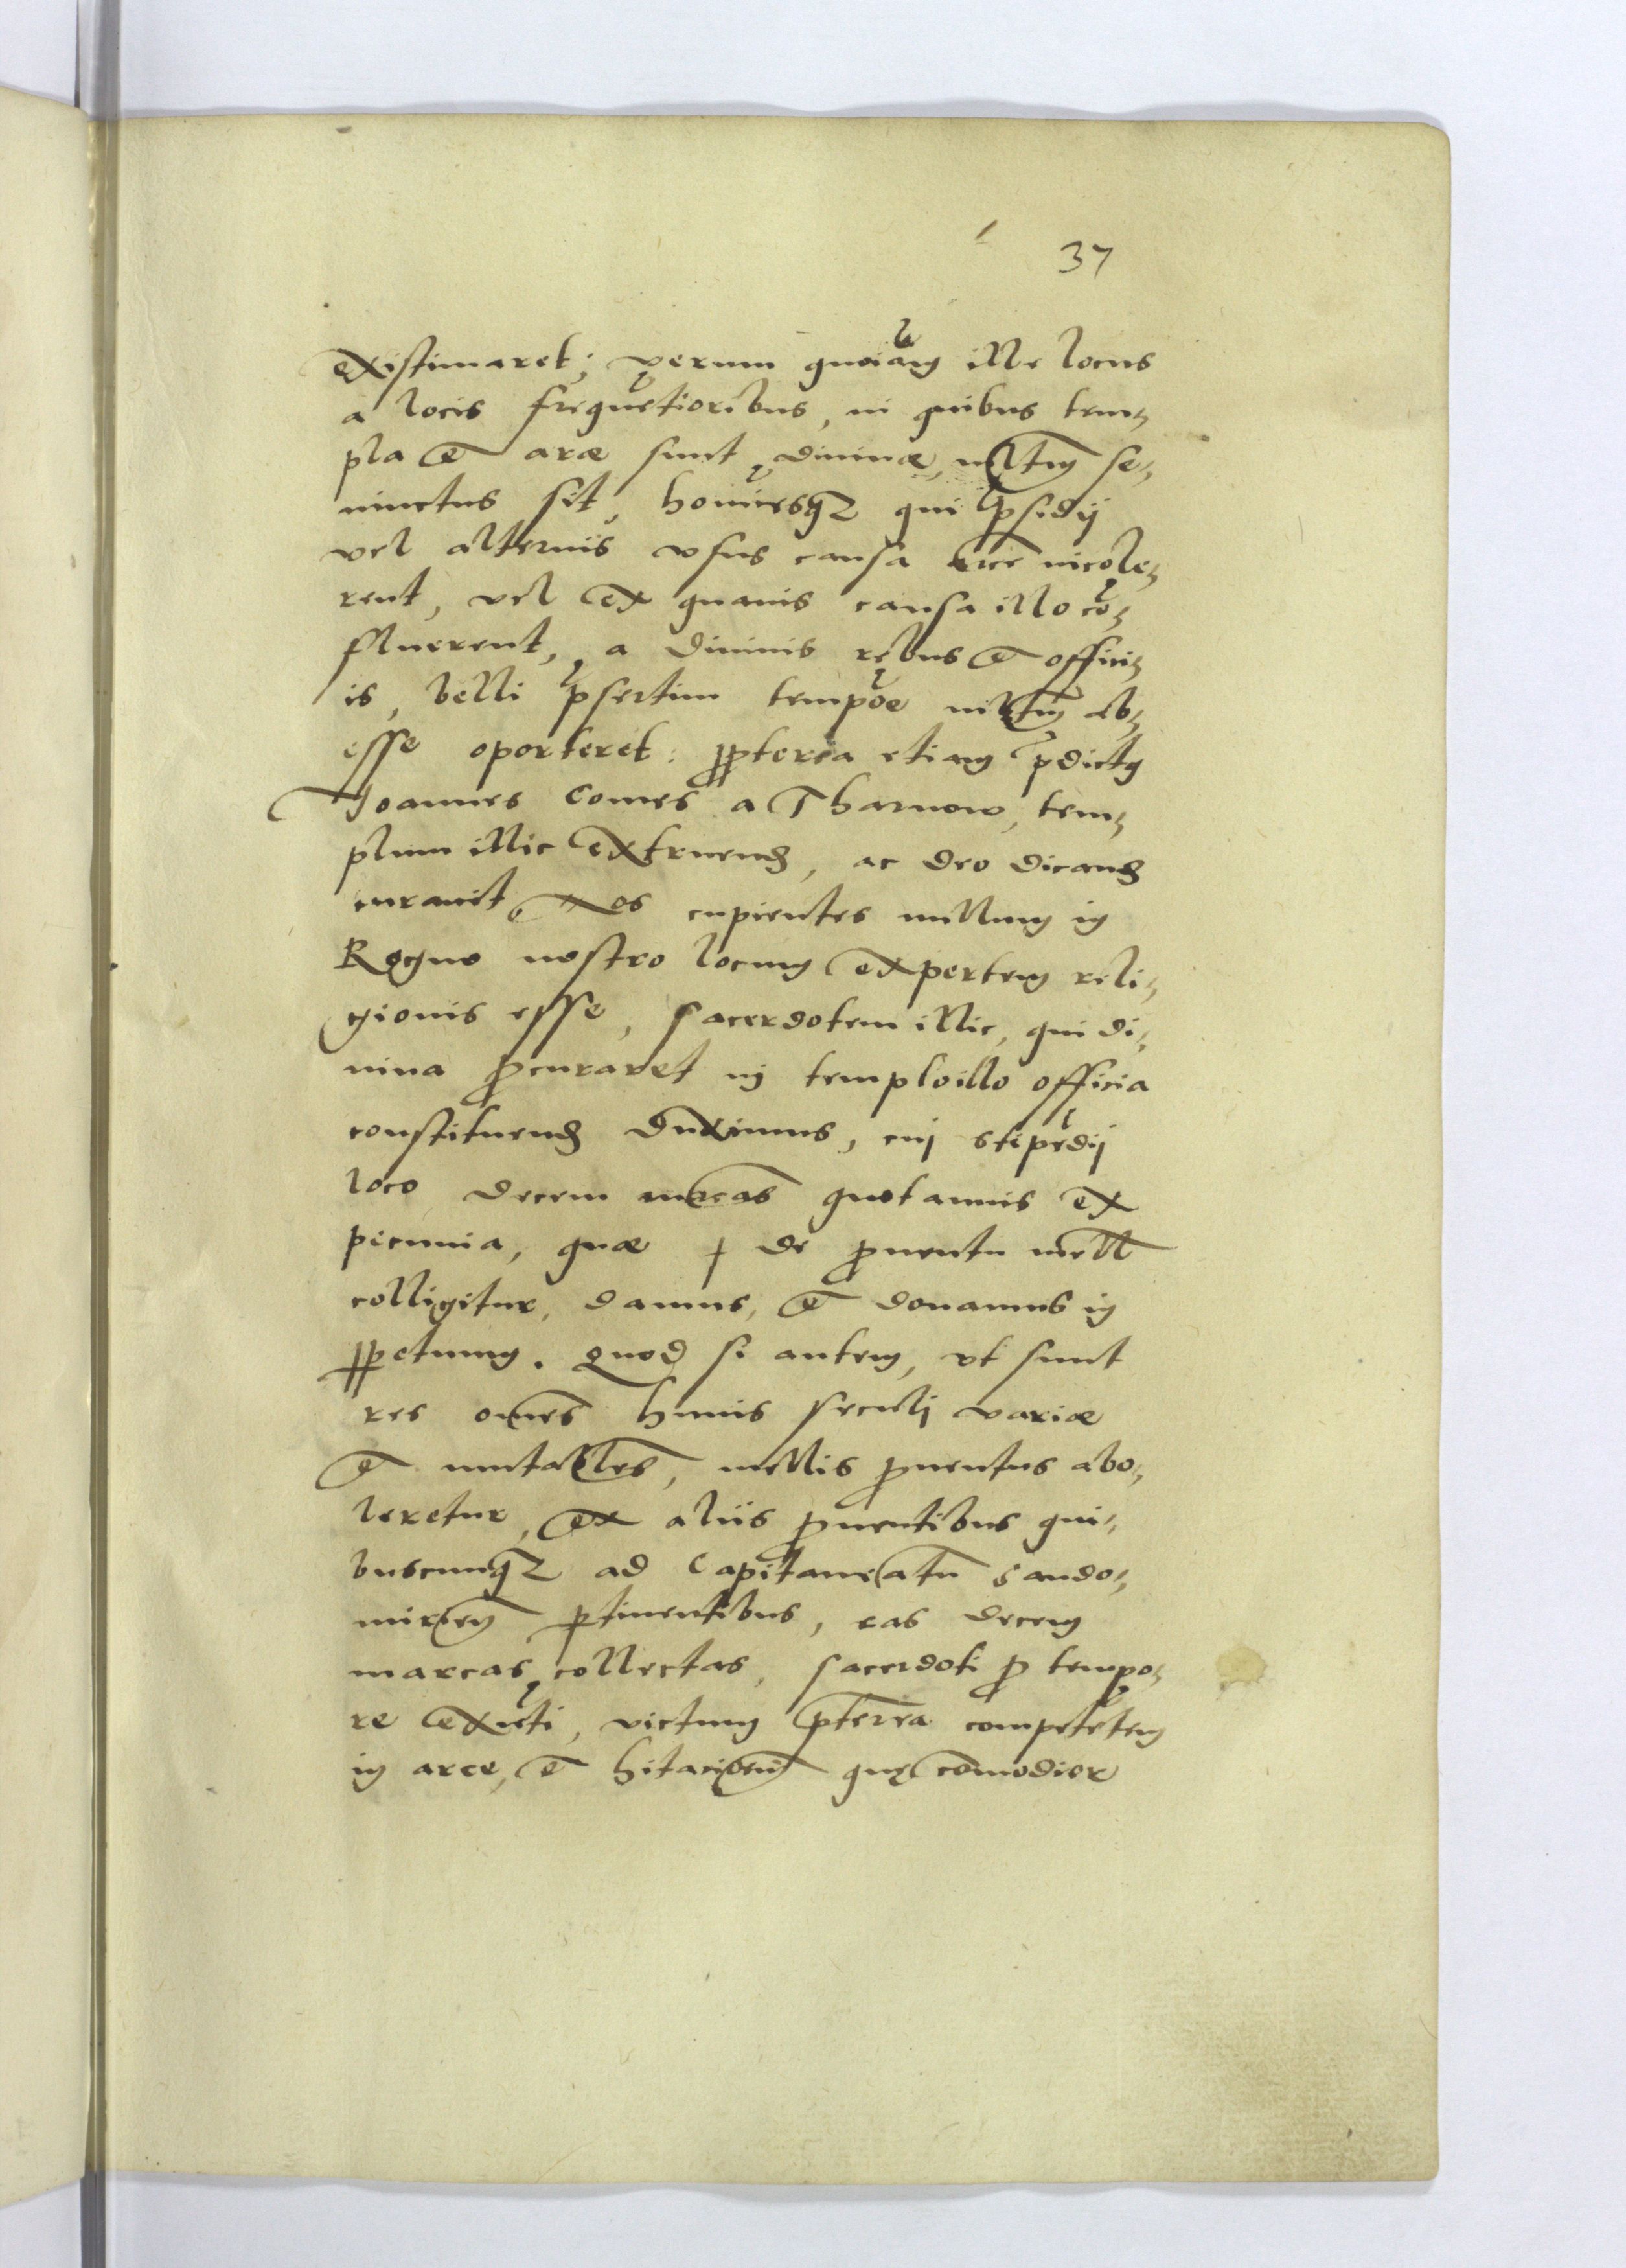 37
existimaret; verum quoiam ille locus
a locis frequẽtioribus, in quibus tem¬
pla et aræ sunt diuinæ, multum se¬
iunctus sit, hoĩesq3 qui p̃sidij
vel alternis vsus causa arcẽ incole¬
rent, vel ex quauis causa illo cõ¬
fluerent, a diuinis rebus et offici¬
is, belli p̃sertim tempõe multum ab¬
esse oporteret: ꝓpterea etiam p̃dictꝰ
Joannes Comes a Tharnow, tem¬
plum illic extruend, ac deo dicand
curauit Nos cupientes nullum in
Regno nostro locum expertem reli¬
gionis esse, sacerdotem illic, qui di¬
uina ꝓcuraret in templo illo officia
constituend duximus, cui stipẽdij
loco decem mrcas quotannis ex
pecunia, quæ de ꝓuentu mell
colligitur, damus, et donamus in
ꝑpetuum. Quod si autem, vt sunt
res omẽs huius seculi variæ
et mutabẽs, mellis ꝓuentus abo¬
leretur, ex aliis ꝓuentibus qui¬
buscunq3 ad Capitaneatũ Sando¬
mirien ꝑtinentibus, eas decem
marcas collectas, sacerdoti ꝓ tempo¬
re exñti, victum p̃terea competẽtem
in arce, et hĩtacionem quę cõmodior